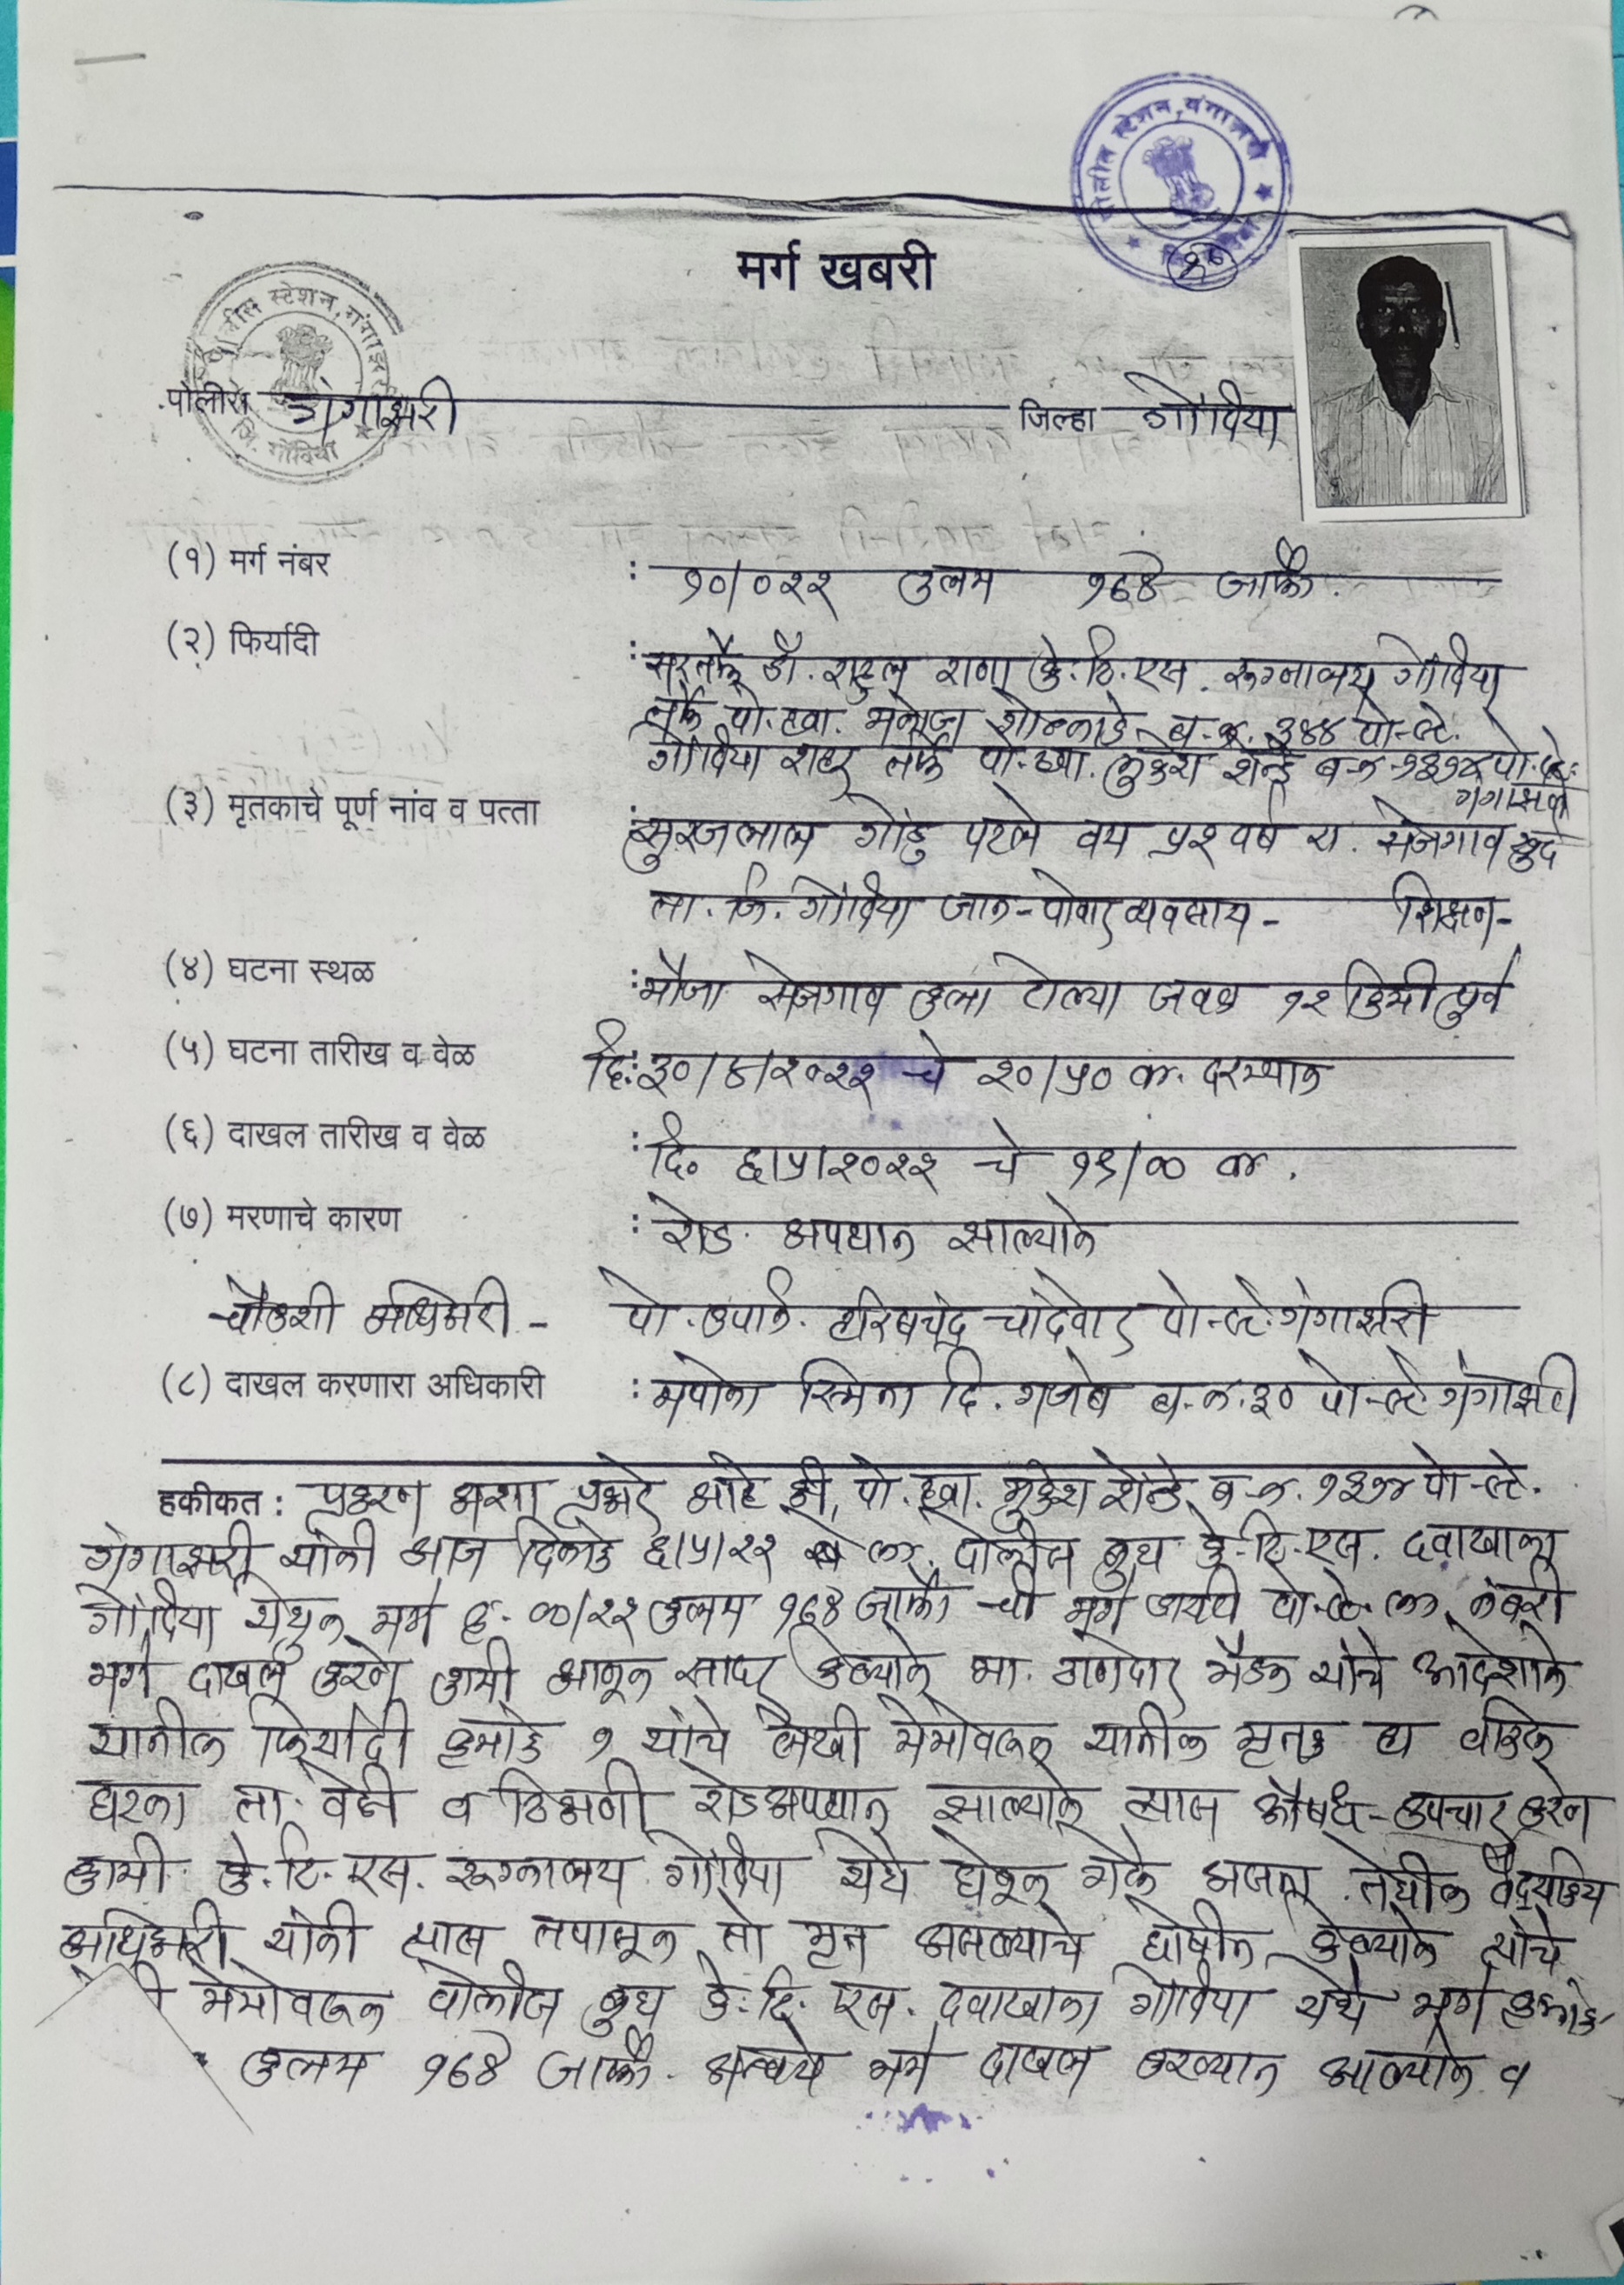 पोलीस स्टेशन, गंगाझरी
मर्ग खबरी
पोलीस स्टेशन, गंगाझरी
जि. गोंदिया
पोलीस गंगाझरी जिल्हा गोंदिया
(१) मर्ग नंबर : १०/०२२ कलम १७४ जाफौ.
(२) फिर्यादी : सरतर्फे डॉ. राहुल राणा के.टि.एस. रुग्नालय गोंदिया
तर्फे पो.हवा. मनोज ब.क्र. ३४४ पो.स्टे.
गोंदिया शहर तर्फे पो.हवा. मुकेश शेन्डे ब.क्र. १३१४ पो.स्टे.
गंगाझरी
(३) मृतकाचे पूर्ण नांव व पत्ता : सुरजलाल गोंदु पटले वय ५२ वर्ष रा. सेजगाव खुर्द
ता. जि. गोंदिया जात-पोवार व्यवसाय- शिक्षण-
(४) घटना स्थळ : मौजा सेजगाव टोल्या जवळ १२ किमी पुर्व
(५) घटना तारीख व वेळ दि: ३०/४/२०२२ चे २०/५० वा. दरम्यान
(६) दाखल तारीख व वेळ : दि. ६/५/२०२२ चे १९/०० वा.
(७) मरणाचे कारण : रोड अपघात झाल्याने
चौकशी अधिकारी - पो.उपनि. हरिषचंद्र चांदेवार पो.स्टे. गंगाझरी
(८) दाखल करणारा अधिकारी : मपोना स्मिता दि. गजबे ब.क्र. ३० पो.स्टे. गंगाझरी
हकीकत : प्रकरण अशा प्रकारे आहे की, पो.हवा. मुकेश शेन्डे ब.क्र. १३१४ पो.स्टे.
गंगाझरी यांनी आज दिनांक ६/५/२२ पोलीस बुथ के.टि.एस. दवाखाना
गोंदिया येथुन मर्ग क्र. ००/२२ कलम १७४ जाफौ ची मर्ग डायरी पो.स्टे. ला नंबरी
मर्ग दाखल करणे कामी आणून सादर केल्याने मा. ठाणेदार मॅडम यांचे आदेशाने
यातील फिर्यादी क्रमांक १ यांचे लेखी मेमोवरून यातील मृतक हा वरील
घटना ता. वेळी व ठिकाणी रोड अपघात झाल्याने त्यास औषध-उपचार करणे
कामी के.टि.एस. रुग्नालय गोंदिया येथे घेवून गेले असता तेथील वैद्यकिय
अधिकारी यांनी त्यास तपासून तो मृत असल्याचे घोषीत केल्याने त्यांचे
मेमोवरून पोलीस बुथ के.टि.एस. दवाखाना गोंदिया येथे मर्ग क्रमांक
कलम १७४ जाफौ. अन्वये मर्ग दाखल करण्यात आल्याने व